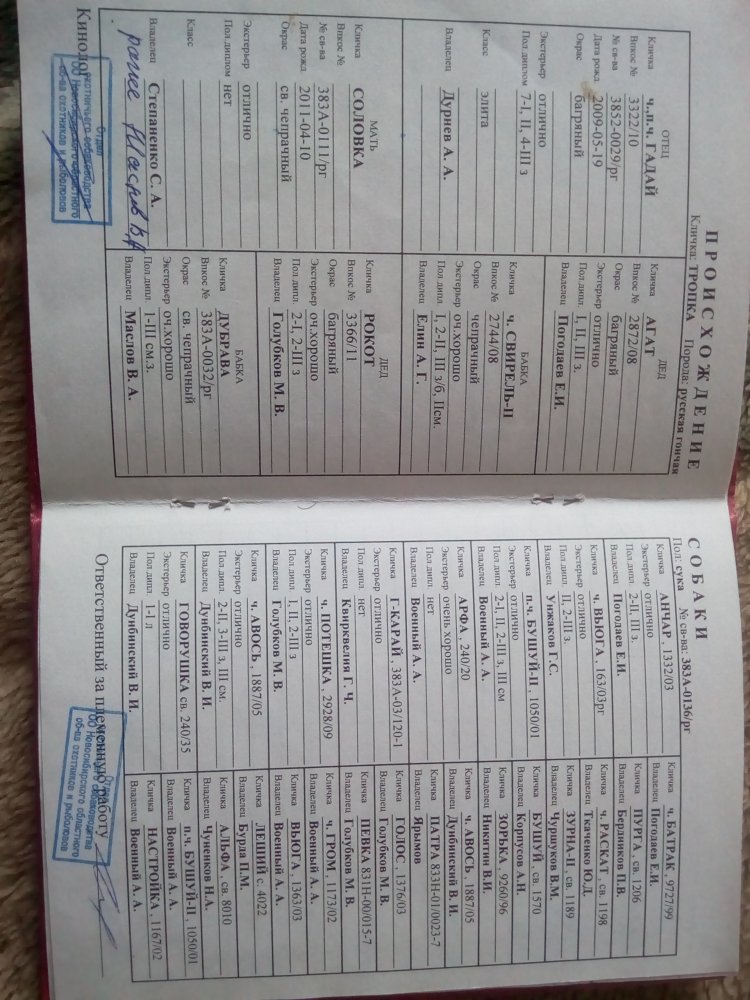 ПРОИСХОЖДЕНИЕ
Кличка: ТРОПКА Порода: русская гончая
ОТЕЦ
Кличка ч.,п.ч. ГАДАЙ
Впкос № 3322/10
№ св-ва 3852-0029/рг
Дата рожд. 2009-05-19
Окрас багряный
Экстерьер отлично
Пол.диплом 7-I, II, 4-III з
Класс элита
Владелец Дурнев А. А.
МАТЬ
Кличка СОЛОВКА
Впкос №
№ св-ва 383А-0111/рг
Дата рожд. 2011-04-10
Окрас св. чепрачный
Экстерьер отлично
Пол.диплом нет
Класс
Владелец Степаненко С. А.
Кинолог
Отдел
охотничьего собаководства
ОО Новосибирского областного
об-ва охотников и рыболовов
ДЕД
Кличка АГАТ
Впкос № 2872/08
Окрас багряный
Экстерьер отлично
Пол.дипл. I, II, III з.
Владелец Погодаев Е.И.
БАБКА
Кличка ч. СВИРЕЛЬ-II
Впкос № 2744/08
Окрас чепрачный
Экстерьер оч.хорошо
Пол.дипл. I, 2-II, III з/б, IIсм.
Владелец Елин А. Г.
ДЕД
Кличка РОКОТ
Впкос № 3366/11
Окрас багряный
Экстерьер оч.хорошо
Пол.дипл. 2-I, 2-III з
Владелец Голубков М. В.
БАБКА
Кличка ДУБРАВА
Впкос № 383А-0032/рг
Окрас св. чепрачный
Экстерьер оч.хорошо
Пол.дипл. 1-III см.з.
Владелец Маслов В. А.
СОБАКИ
Пол: сука № св-ва: 383А-0136/рг
Кличка АНЧАР , 1332/03
Экстерьер отлично
Пол.дипл. 2-II, III з.
Владелец Погодаев Е.И.
Кличка ч. ВЬЮГА , 163/03рг
Экстерьер отлично
Пол.дипл. II, 2-III з.
Владелец Унжаков Г.С.
Кличка п.ч. БУШУЙ-II , 1050/01
Экстерьер отлично
Пол.дипл. 2-I, II, 2-III з, III см
Владелец Военный А. А.
Кличка АРФА , 240/20
Экстерьер очень хорошо
Пол.дипл. нет
Владелец Военный А. А.
Кличка Г-КАРАЙ , 383А-03/120-1
Экстерьер отлично
Пол.дипл. нет
Владелец Квирквелия Г. Ч.
Кличка ч. ПОТЕШКА , 2928/09
Экстерьер отлично
Пол.дипл. I, II, 2-III з
Владелец Голубков М. В.
Кличка ч. АВОСЬ , 1887/05
Экстерьер отлично
Пол.дипл. 2-II, 3-III з, III см.
Владелец Дунбинский В. И.
Кличка ГОВОРУШКА св. 240/35
Экстерьер отлично
Пол.дипл. 1-I л
Владелец Дунбинский В. И.
Кличка ч. БАТРАК , 9727/99
Владелец Погодаев Е.И.
Кличка ПУРГА , св. 1206
Владелец Бердников П.В.
Кличка ч. РАСКАТ , св. 1198
Владелец Ткаченко Ю.Д.
Кличка ЗУРНА-II , св. 1189
Владелец Чуршуков В.М.
Кличка БУШУЙ , св. 1570
Владелец Корпусов А.Н.
Кличка ЗОРЬКА , 9260/96
Владелец Никитин В.И.
Кличка ч. АВОСЬ , 1887/05
Владелец Дунбинский В. И.
Кличка ПАТРА 833Н-01/0023-7
Владелец Ярымов
Кличка ГОЛОС , 1376/03
Владелец Голубков М. В.
Кличка ПЕВКА 831Н-00/015-7
Владелец Голубков М. В.
Кличка ч. ГРОМ , 1173/02
Владелец Военный А. А.
Кличка ВЬЮГА , 1363/03
Владелец Военный А. А.
Кличка ЛЕШИЙ с. 4022
Владелец Бурла П.М.
Кличка АЛЬФА , св. 8010
Владелец Чуненков Н.А.
Кличка п.ч. БУШУЙ-II , 1050/01
Владелец Военный А. А.
Кличка НАСТРОЙКА , 1167/02
Владелец Военный А. А.
Ответственный за племенную работу
Отдел
охотничьего собаководства
ОО Новосибирского областного
об-ва охотников и рыболовов